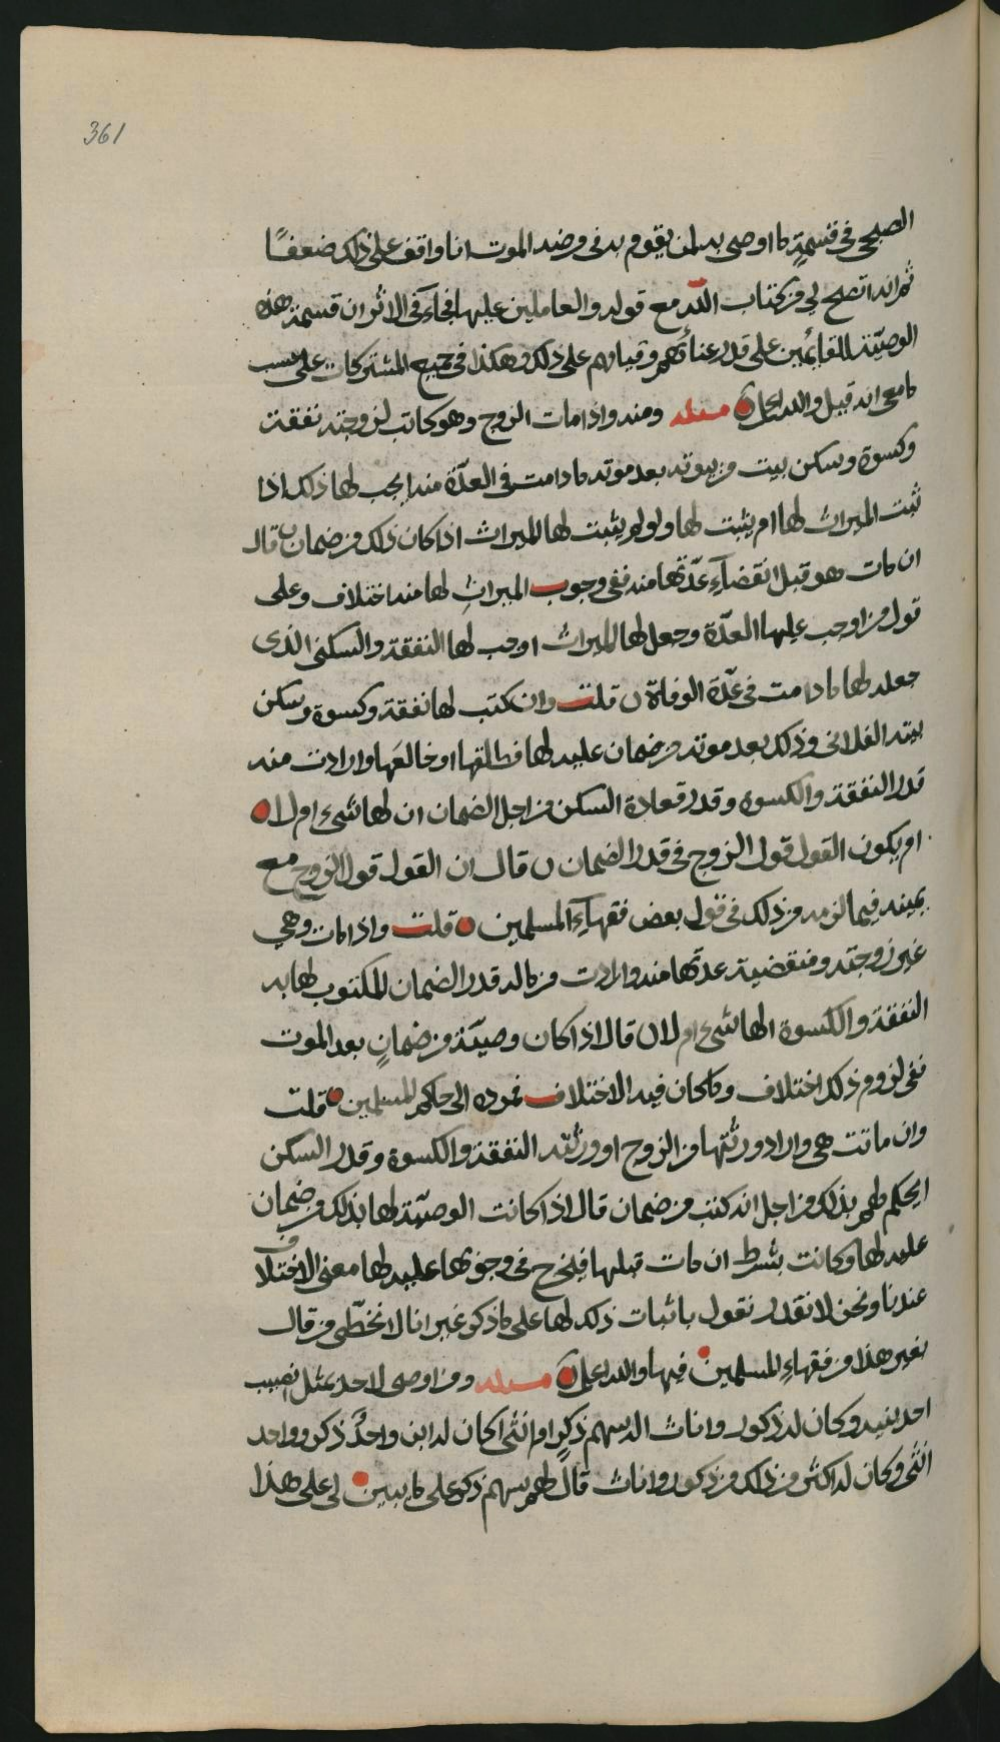 361
الصبحي في قسمة ما اوصى به لمن يقوم به في وضد الموت انا واقف على ذلك ضعفًا
ثم انه اتضح لي من كتاب الله مع قوله والعاملين عليها فجاء في الاثر ان قسمة هذه
الوصيّة للقايمين على قدر عنائهم وقيامهم على ذلك وهكذا في جميع المشتركات على حسب
ما معي انه قيل والله اعلم مسئله ومنه واذا مات الزوج وهو كاتب لزوجته نفقة
وكسوة وسكن بيت من بيوته بعد موته ما دامت في العدّة منه ايجب لها ذلك اذا
ثبت الميراث لها ام يثبت لها ولو لم يثبت لها الميراث اذا كان ذلك من ضمان ن قال
ان مات هو قبل انقضاءِ عدّتها منه ففي وجوب الميراثِ لها منه اختلاف وعلى
قول من اوجب عليها العدّة وجعل لها الميراث اوجب لها النفقة والسكنى الذى
جعله لها ما دامت في عدّة الوفاة ن قلت وان كتب لها نفقة وكسوة وسكن
بيته الفلانى وذلك بعد موته من ضمان عليه لها فطلقها او خالعَها وارادت منه
قدر النفقة والكسوة وقدر قعادة السكن من اجل الضمان ان لها شىء ام لا
ام يكون القول قول الزوج في قدر الضمان ن قال ان القول قول الزوج مع
يمينه فيما لزمه من ذلك في قول بعض فقهاءِ المسلمين قلت واذا مات وهي
غير زوجته ومنقضية عدتها منه وارادت من ماله قدر الضمان المكتوب لها به
النفقة والكسوة الها شىء ام لا ن قال اذا كان وصيّة من ضمانٍ بعد الموت
ففى لزوم ذلك اختلاف وما كان فيه الاختلاف فمرده الى حاكم المسلمين قلت
وان ماتت هي واراد ورثتها من الزوج او ورثته النفقة والكسوة وقدر السكن
ايحكم لهم بذلك من اجل انه كتب من ضمان قال اذا كانت الوصيّة لها بذلك من ضمان
عليه لها وكانت بشرط ان مات قبلها فيخرج في وجوبها عليه لها معنى الاختلاف
عندنا ونحن لا نقدر نقول باثبات ذلك لها على ما ذكر غير انا لا نخطّى من قال
بغير هذا من فقهاءِ المسلمين فيها والله اعلم مسئله ومن اوصى لاحد بمثل نصيب
احد بنيه وكان له ذكور واناث اله سهم ذكرٍ ام انثى اكان له ابن واحدٌ ذكر وواحد
انثى وكان له اكثر من ذلك من ذكور واناث قال لهم سهم ذكر على ما يبين لى على هذا